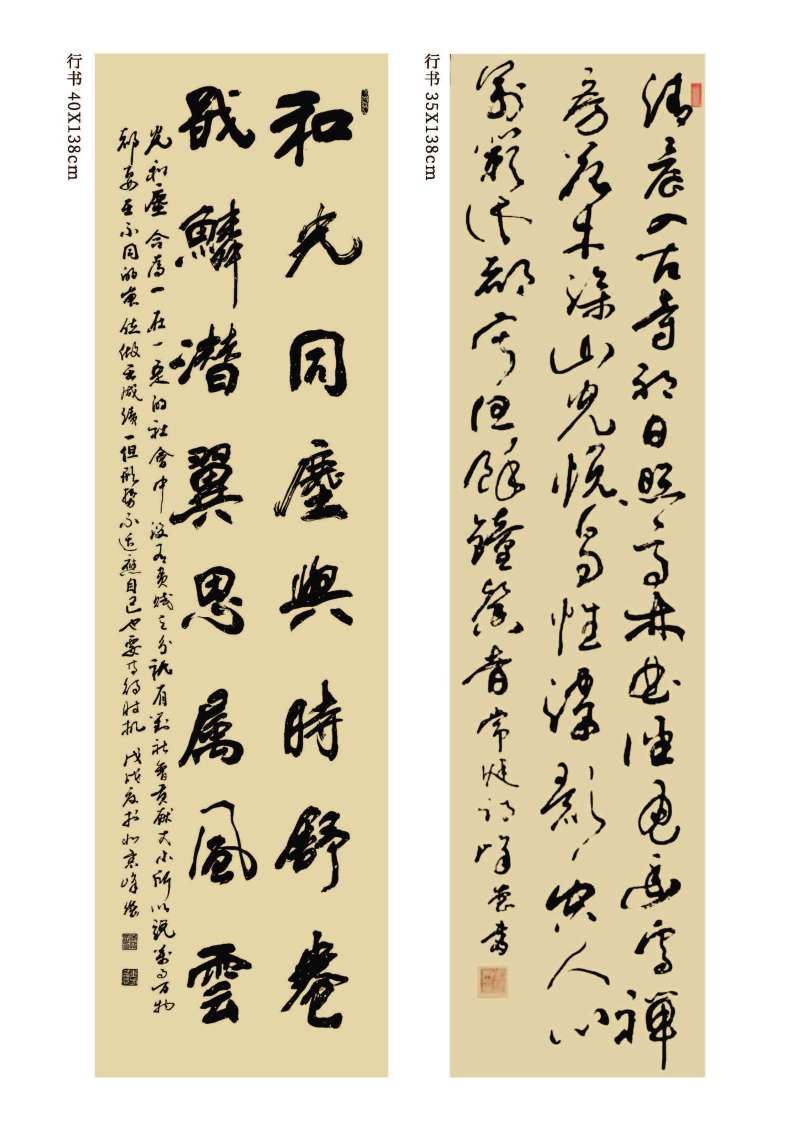 行书 40X138cm
和光同塵與時舒卷
戢鱗潛翼思属風雲
光和塵合為一在一定的社會中没有貴賤之分就有對社會貢献大小所以説萬事万物
都要在不同的崗位做出成績一但形勢不适應自己也要等待时机 戊戌夏於北京峰
行书 35X138cm
清晨入古寺初日照高林曲径通幽處禪
房花木深山光悦鳥性潭影空人心
萬籟此都寂但餘鐘磬音常建詩峰書